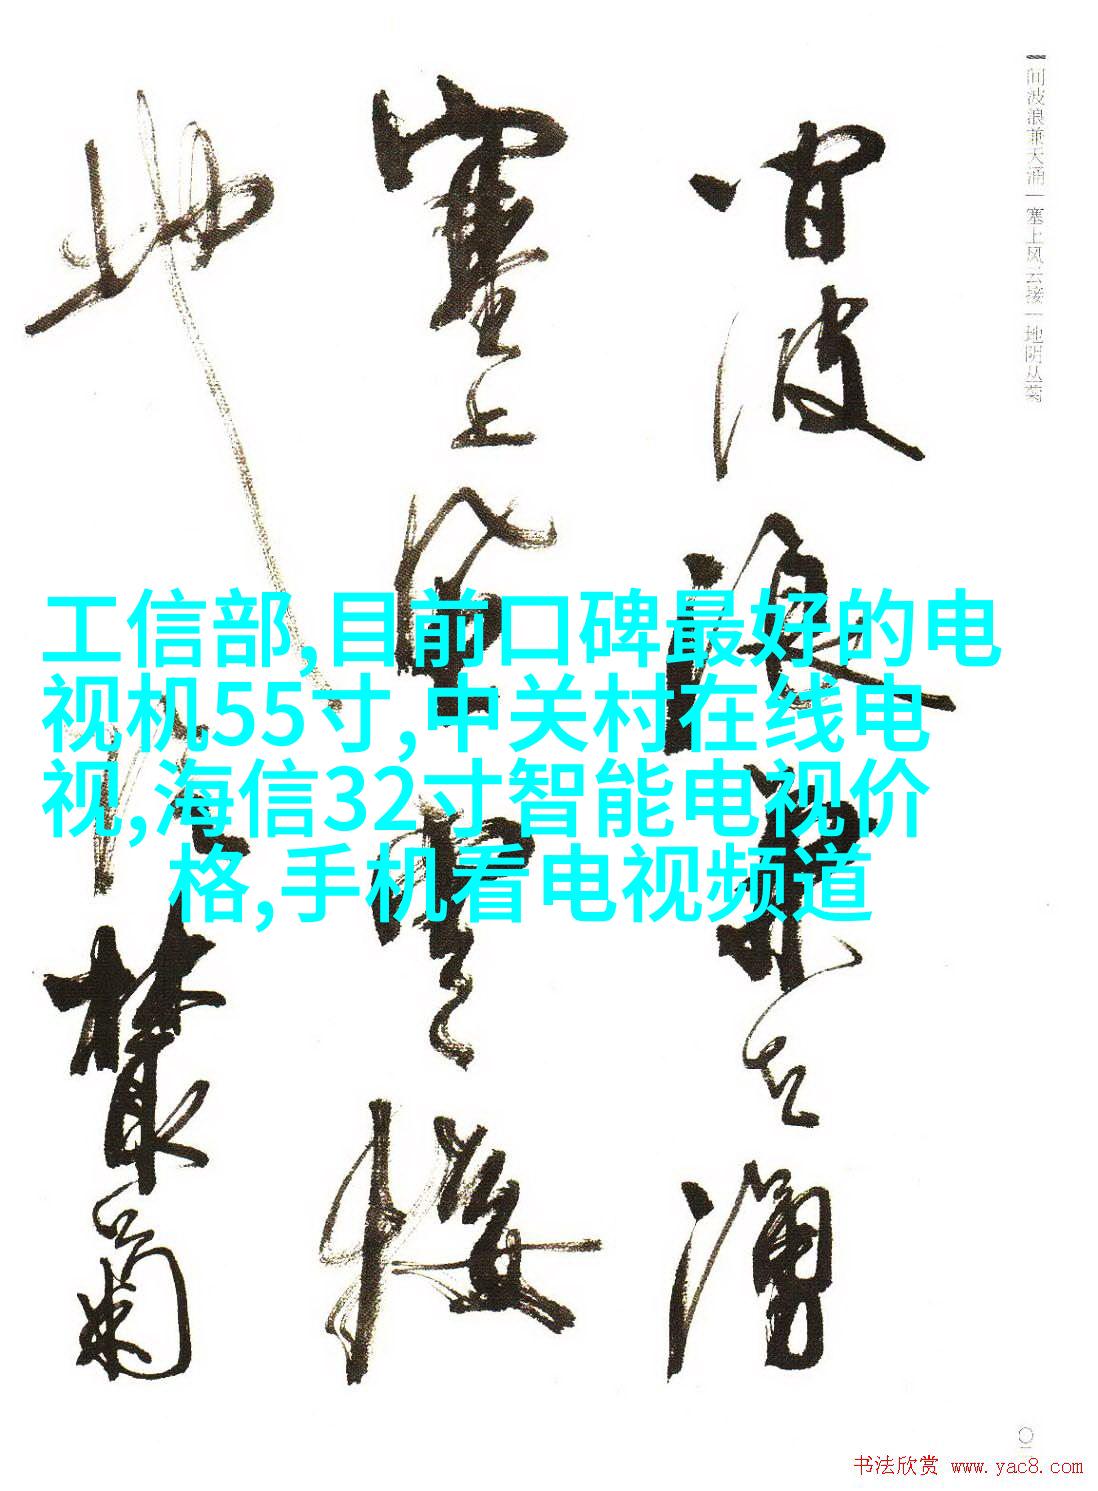 间波浪兼天涌｜塞上风云接｜地阴丛菊
间波浪兼天涌
塞上风云接
地阴丛菊
工信部,目前口碑最好的电
视机55寸,中关村在线电
视,海信32寸智能电视价
格,手机看电视频道
书法欣赏 www.yac8.com